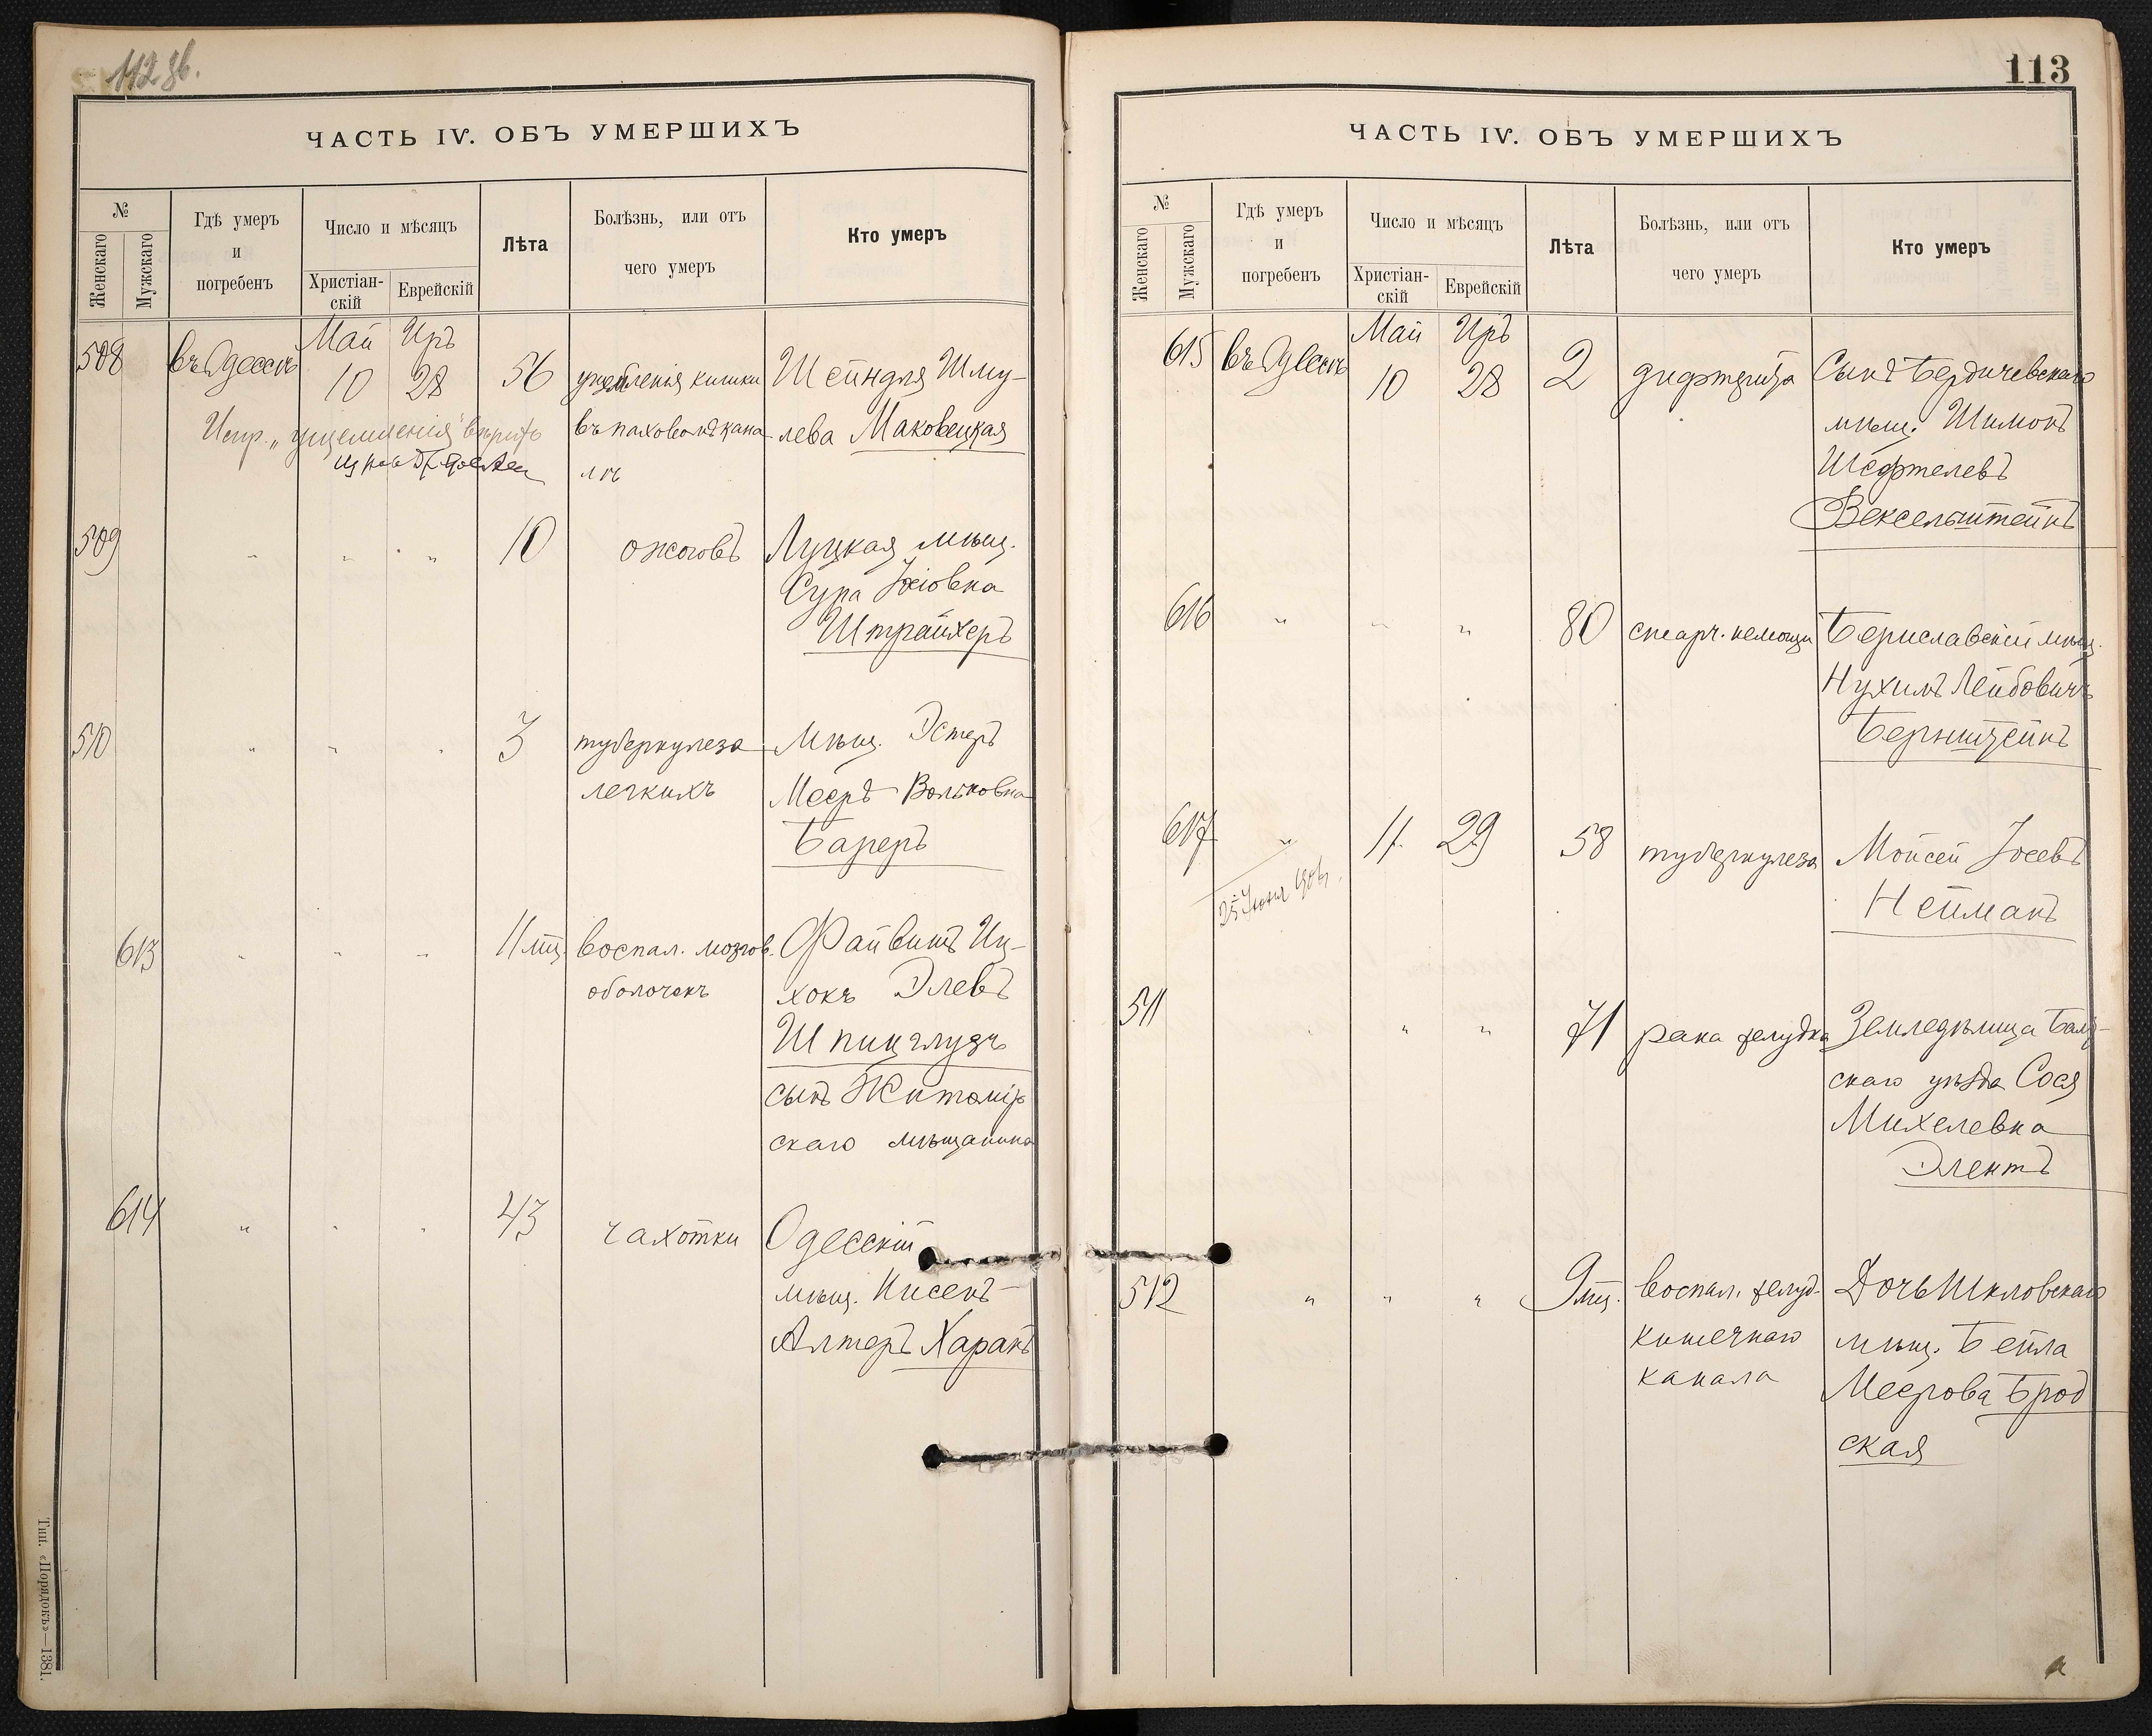 112 об.
ЧАСТЬ IV. ОБЪ УМЕРШИХЪ
№
Женскаго
Мужскаго
Гдѣ умеръ
и
погребенъ
Число и мѣсяцъ
Христіан-
скій
Еврейскій
Лѣта
Болѣзнь, или отъ
чего умеръ
Кто умеръ
Май Иръ
508 въ Одессѣ 10 28 56 ущемленія кишки Шейндля Шму-
въ паховомъ кана- лева Маковецкая
лѣ
Испр. „ущемленія" вѣрить
509 „ „ „ 10 ожоговъ Луцкая мѣщ.
Сура Хаіовна
Штрайхеръ
510 „ „ „ 3 туберкулеза Мѣщ. Эстеръ
легкихъ Мееръ Вольковна
Бареръ
613 „ „ „ 11 мц. воспал. мозгов. Файвишъ Иц-
оболочекъ хокъ Элевъ
Шпицглузъ
сынъ Житомір
скаго мѣщанина
614 „ „ „ 43 чахотки Одесскій
мѣщ. Нисенъ-
Алтеръ Харакъ
Тип. «Порядокъ»—1381.
113
ЧАСТЬ IV. ОБЪ УМЕРШИХЪ
№
Женскаго
Мужскаго
Гдѣ умеръ
и
погребенъ
Число и мѣсяцъ
Христіан-
скій
Еврейскій
Лѣта
Болѣзнь, или отъ
чего умеръ
Кто умеръ
Май Иръ
615 въ Одессѣ 10 28 2 дифтерита Сынъ Бердичевскаго
мѣщ. Шимонъ
Шефтелевъ
Вексельштейнъ
616 „ „ „ 80 старч. немощи Бериславскій мѣщ.
Нухимъ Лейбовичъ
Бернштейнъ
617 „ 11 29 58 туберкулеза Мойсей Іосевъ
Нейманъ
25 Іюня
511 „ „ „ 71 рака желудка Земледѣлица Балт-
скаго уѣзда Сося
Михелевна
Элентъ
512 „ „ „ 9 мц. воспал. желуд- Дочь Шкловскаго
кишечнаго мѣщ. Бейла
канала Меерова Брод
ская